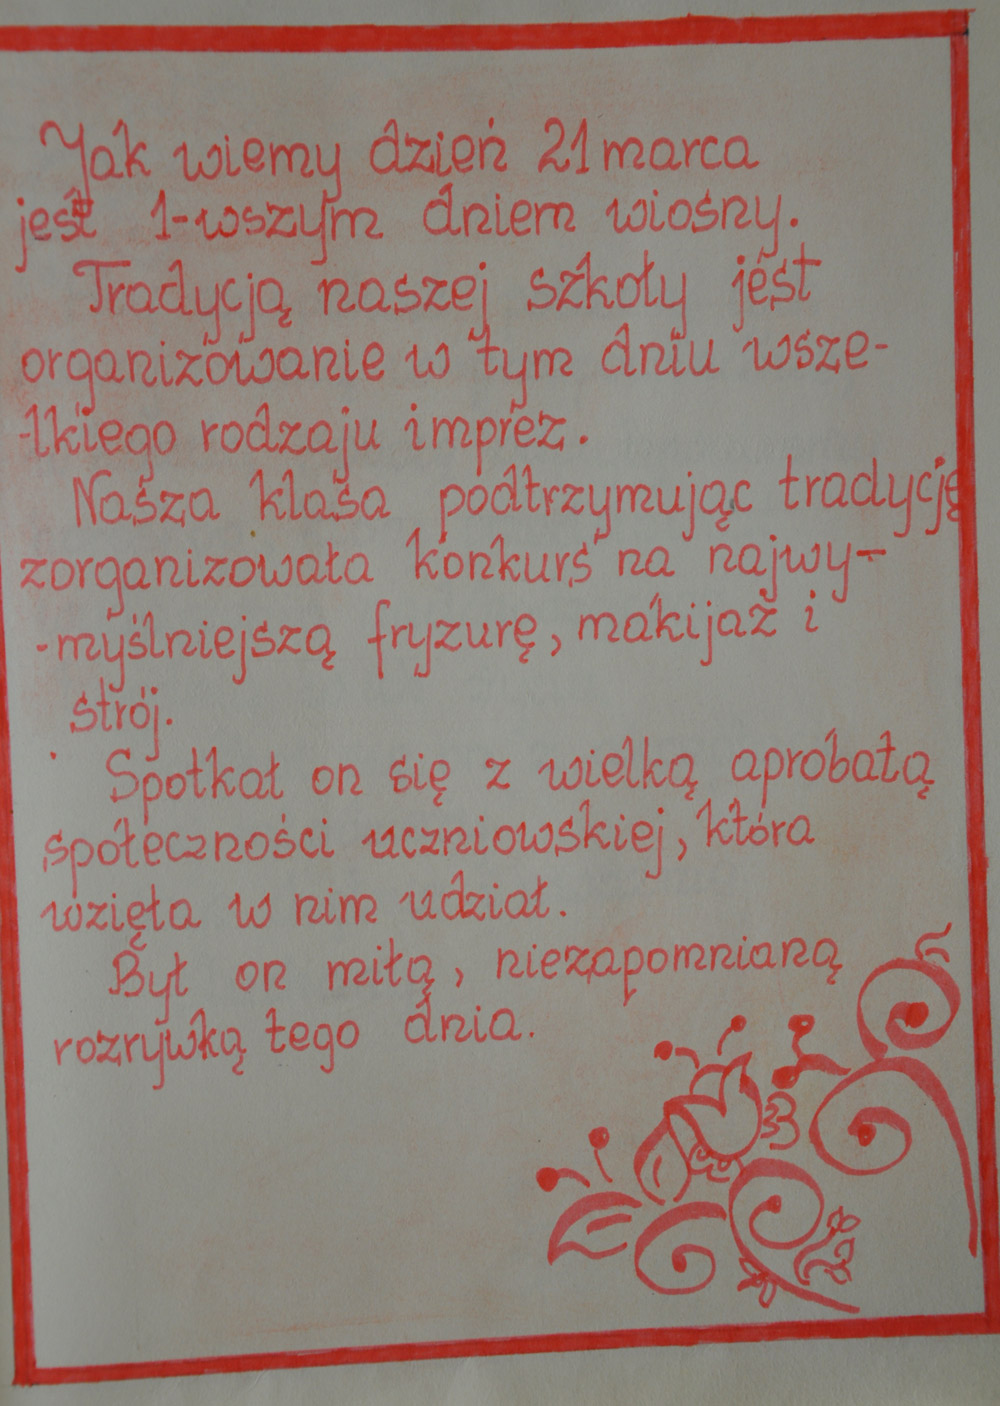 Jak wiemy dzień 21 marca
jest 1-wszym dniem wiosny.
Tradycją naszej szkoły jest
organizowanie w tym dniu wsze-
-lkiego rodzaju imprez.
Nasza klasa podtrzymując tradycję
zorganizowała konkurs na najwy-
-myślniejszą fryzurę, makijaż i
strój.
Spotkał on się z wielką aprobatą
społeczności uczniowskiej, która
wzięła w nim udział.
Był on miłą, niezapomnianą
rozrywką tego dnia.